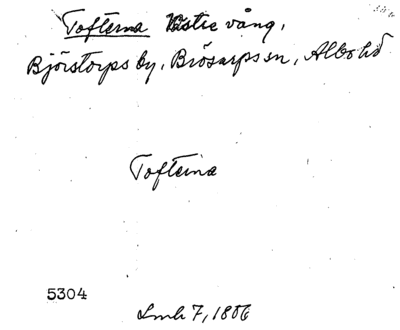 Tofterna Västre vång,
Björstorps by, Brösarps sn, Albo hd
Tofterna
5304
Lmh 7, 1806